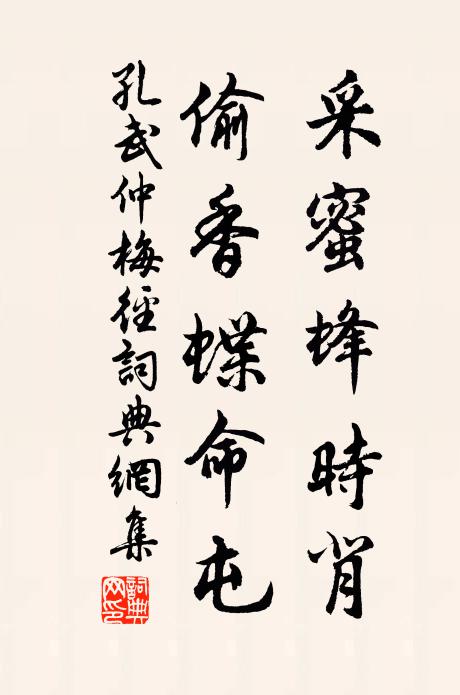 采蜜蜂時背
偷香蝶命屯
孔武仲梅徑詞典網集
詞典网印